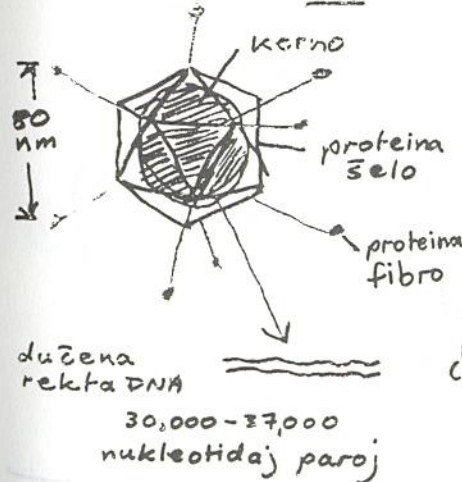 kerno
80
nm
proteina
ŝelo
proteina
fibro
duĉena
rekta DNA
30,000-37,000
nukleotidaj paroj